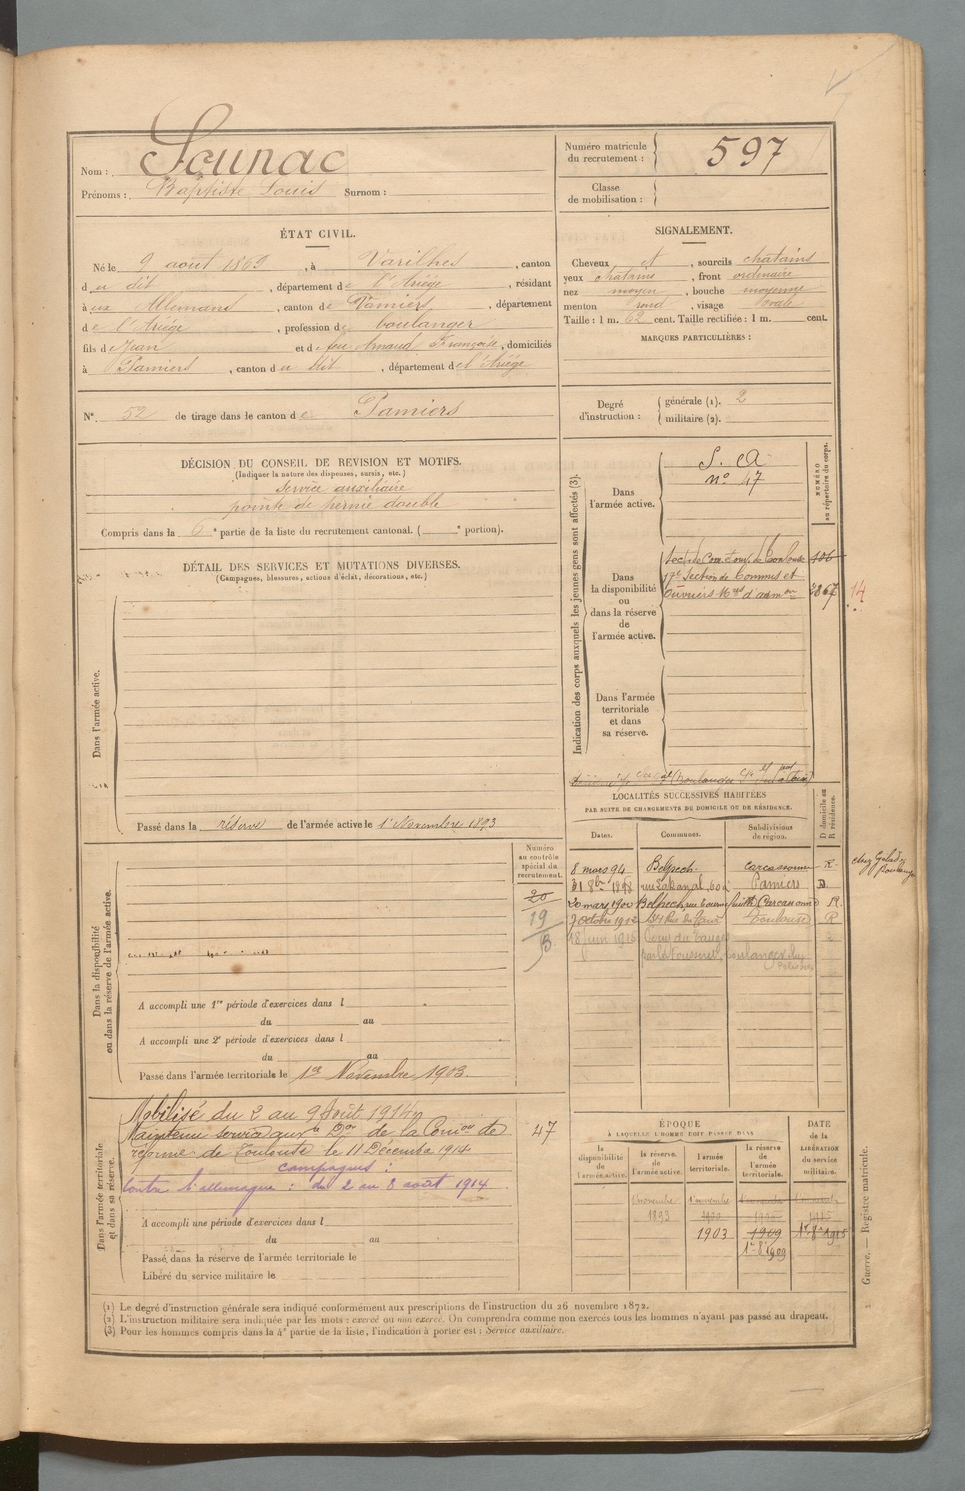 Nom : Sounac
Prénoms : Baptiste Louis Surnom :
Numéro matricule du recrutement : 597
Classe de mobilisation :
ÉTAT CIVIL.
Né le 9 août 1869, à Varilhes, canton
du dit, département de l'Ariège, résidant
à aux Allemans, canton de Pamiers, département
de l'Ariège, profession de boulanger
fils de Jean et de feu Arnaud Françoise, domiciliés
à Pamiers, canton du dit, département de l'Ariège
SIGNALEMENT.
Cheveux et, sourcils chatains
yeux chatains, front ordinaire
nez moyen, bouche moyenne
menton rond, visage ovale
Taille : 1 m. 62 cent. Taille rectifiée : 1 m. cent.
MARQUES PARTICULIÈRES :
N° 52 de tirage dans le canton de Pamiers
Degré d'instruction : générale (1). 2
militaire (2).
DÉCISION DU CONSEIL DE REVISION ET MOTIFS.
(Indiquer la nature des dispenses, sursis, etc.)
Service auxiliaire
pointe de hernie double
Compris dans la 6e partie de la liste du recrutement cantonal. ( e portion).
DÉTAIL DES SERVICES ET MUTATIONS DIVERSES.
(Campagnes, blessures, actions d'éclat, décorations, etc.)
Dans l'armée active.
Passé dans la réserve de l'armée active le 1er Novembre 1893
Indication des corps auxquels les jeunes gens sont affectés (3).
NUMÉRO au répertoire du corps.
Dans l'armée active.
S. A
n° 47
Dans la disponibilité ou dans la réserve de l'armée active.
17e Section de Commis et
Ouvriers Mres d'admon
14
Dans l'armée territoriale et dans sa réserve.
LOCALITÉS SUCCESSIVES HABITÉES
PAR SUITE DE CHANGEMENTS DE DOMICILE OU DE RÉSIDENCE.
D domicile ou R résidence.
Dates. Communes. Subdivisions de région.
8 mars 94 Belpech Carcassonne R
Pamiers D
20 mars 1900 Belpech Carcassonne R.
7 octobre 1902 Toulouse R
18 juin 1915
Numéro au contrôle spécial du recrutement.
20
19
Dans la disponibilité ou dans la réserve de l'armée active.
A accompli une 1re période d'exercices dans l
du au
A accompli une 2e période d'exercices dans l
du au
Passé dans l'armée territoriale le 1er Novembre 1903.
Dans l'armée territoriale et dans sa réserve.
Mobilisé du 2 au 9 Août 1914
Maintenu service auxre Don de la Comon de
réforme de Toulouse le 11 Décembre 1914
campagnes :
Contre l'allemagne : du 2 au 8 août 1914
47
A accompli une période d'exercices dans l
du au
Passé dans la réserve de l'armée territoriale le
Libéré du service militaire le
ÉPOQUE
À LAQUELLE L'HOMME DOIT PASSER DANS
la disponibilité de l'armée active. la réserve de l'armée active. l'armée territoriale. la réserve de l'armée territoriale. DATE de la LIBÉRATION du service militaire.
1 novembre 1 novembre
1893 1900 1915
1903 1909
(1) Le degré d'instruction générale sera indiqué conformément aux prescriptions de l'instruction du 26 novembre 1872.
(2) L'instruction militaire sera indiquée par les mots : exercé ou non exercé. On comprendra comme non exercés tous les hommes n'ayant pas passé au drapeau.
(3) Pour les hommes compris dans la 4e partie de la liste, l'indication à porter est : Service auxiliaire.
Guerre. — Registre matricule.